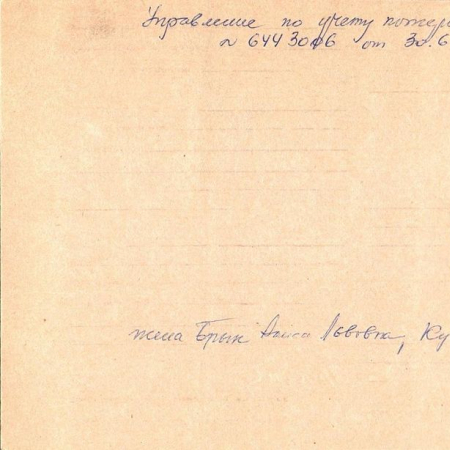 Управление по учету потер
№ 6443006 от 30.6
жена Брын Аниса Львовна, Ку